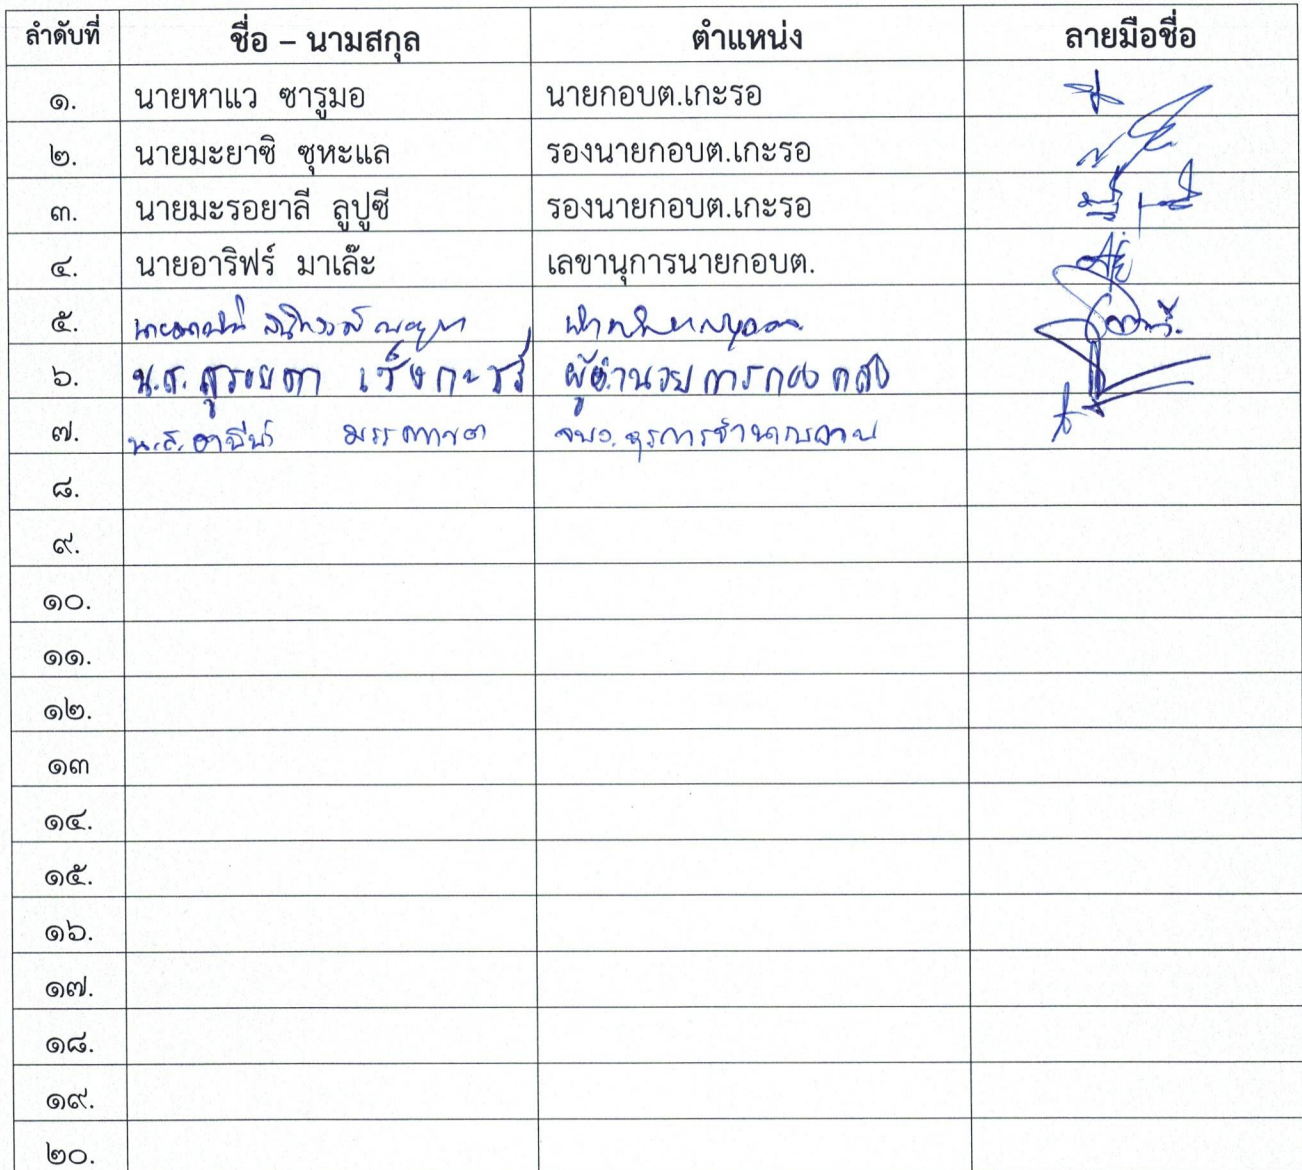 ลำดับที่ ชื่อ – นามสกุล ตำแหน่ง ลายมือชื่อ
๑. นายหาแว ซารูมอ นายกอบต.เกะรอ
๒. นายมะยาซิ ซุหะแล รองนายกอบต.เกะรอ
๓. นายมะรอยาลี ลูปูซี รองนายกอบต.เกะรอ
๔. นายอาริฟร์ มาเล๊ะ เลขานุการนายกอบต.
๕.
๖. น.ส. ผู้อำนวยการกองคลัง
๗. น.ส. จพง.ธุรการชำนาญงาน
๘.
๙.
๑๐.
๑๑.
๑๒.
๑๓
๑๔.
๑๕.
๑๖.
๑๗.
๑๘.
๑๙.
๒๐.